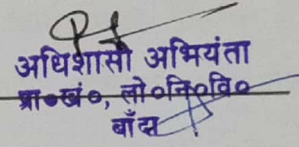 अधिशासी अभियंता
प्रा०खं०, लो०नि०वि०
बाँदा